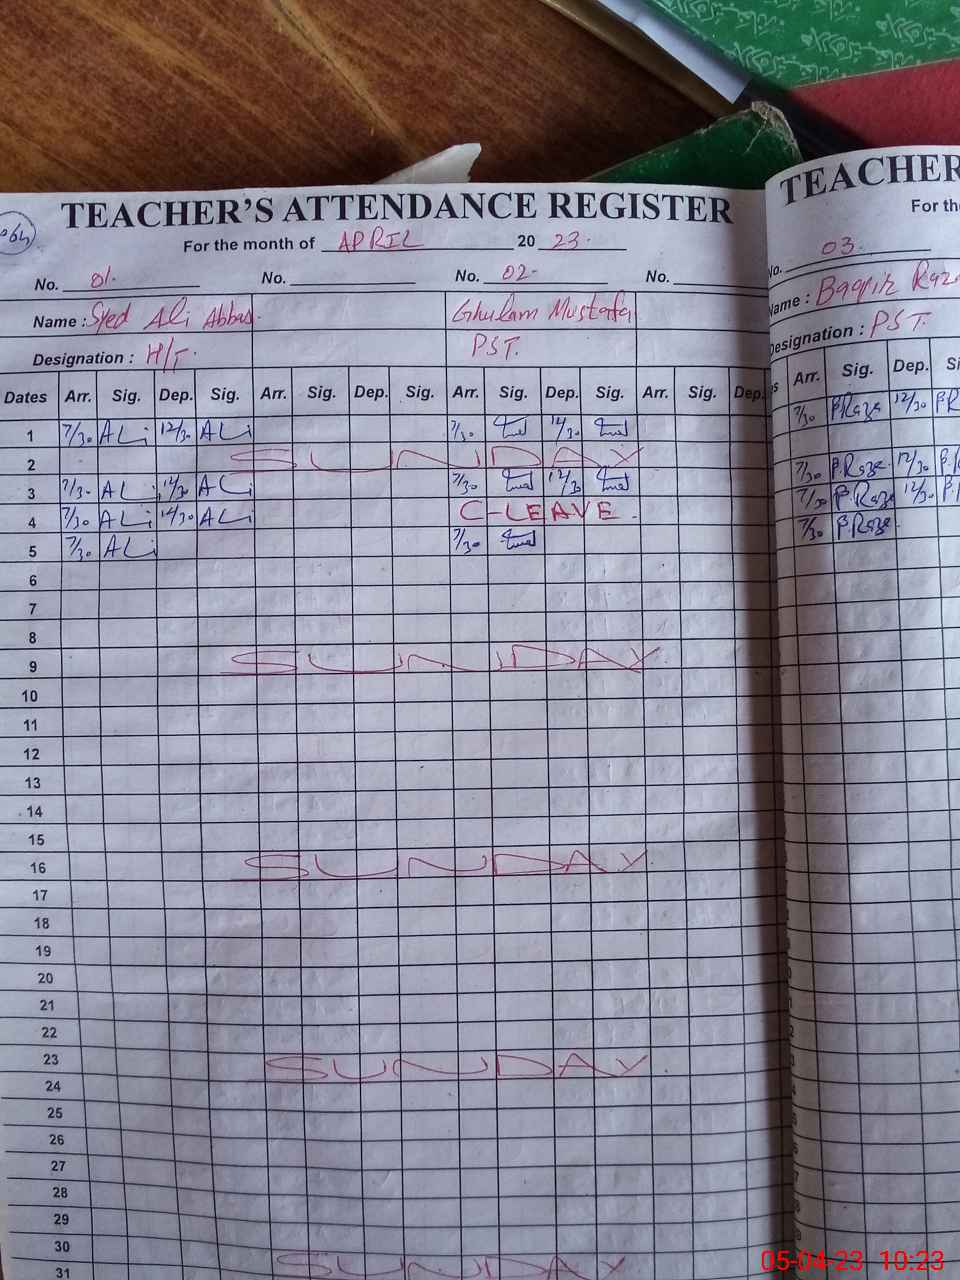 TEACHER'S ATTENDANCE REGISTER
For the month of APRIL 20 23.
No. 01. No. No. 02. No.
Name : Syed Ali Abbas Ghulam Mustafa
Designation : H/T. PST.
Dates Arr. Sig. Dep. Sig. Arr. Sig. Dep. Sig. Arr. Sig. Dep. Sig. Arr. Sig. Dep.
1 7/30 ALi 12/30 ALi 7/30 12/30
2 SUNDAY
3 7/30 ALi 12/30 ALi 7/30 12/30
4 7/30 ALi 12/30 ALi C-LEAVE.
5 7/30 ALi 7/30
6
7
8
9 SUNDAY
10
11
12
13
14
15
16 SUNDAY
17
18
19
20
21
22
23 SUNDAY
24
25
26
27
28
29
30 SUNDAY
31
TEACHER
For the
No. 03.
Name : Baqir Raza
Designation : PST.
Arr. Sig. Dep.
7/30 B.Raza 12/30
7/30 B.Raza 12/30
7/30 B.Raza 12/30
7/30 B.Raza.
05-04-23 10:23